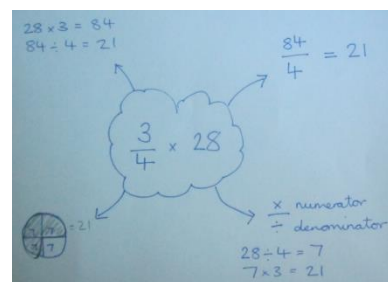 28 × 3 = 84
84 ÷ 4 = 21
84/4 = 21
3/4 × 28
7 7
7 7
= 21
× numerator
÷ denominator
28 ÷ 4 = 7
7 × 3 = 21